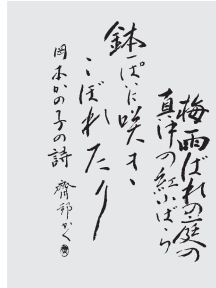 梅雨ばれの庭の
真中の紅小ばら
鉢一ぱいに咲き
こぼれたり
岡本かの子の詩 齊邨かく